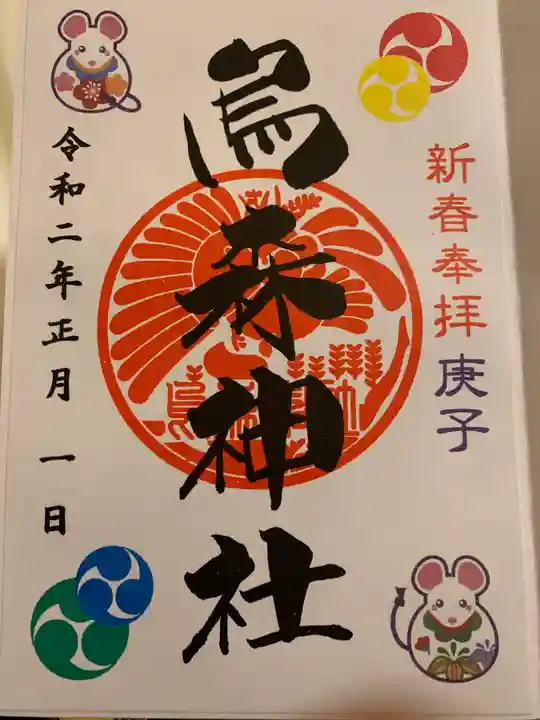 新春奉拝 庚子
烏森神社
令和二年正月 一日